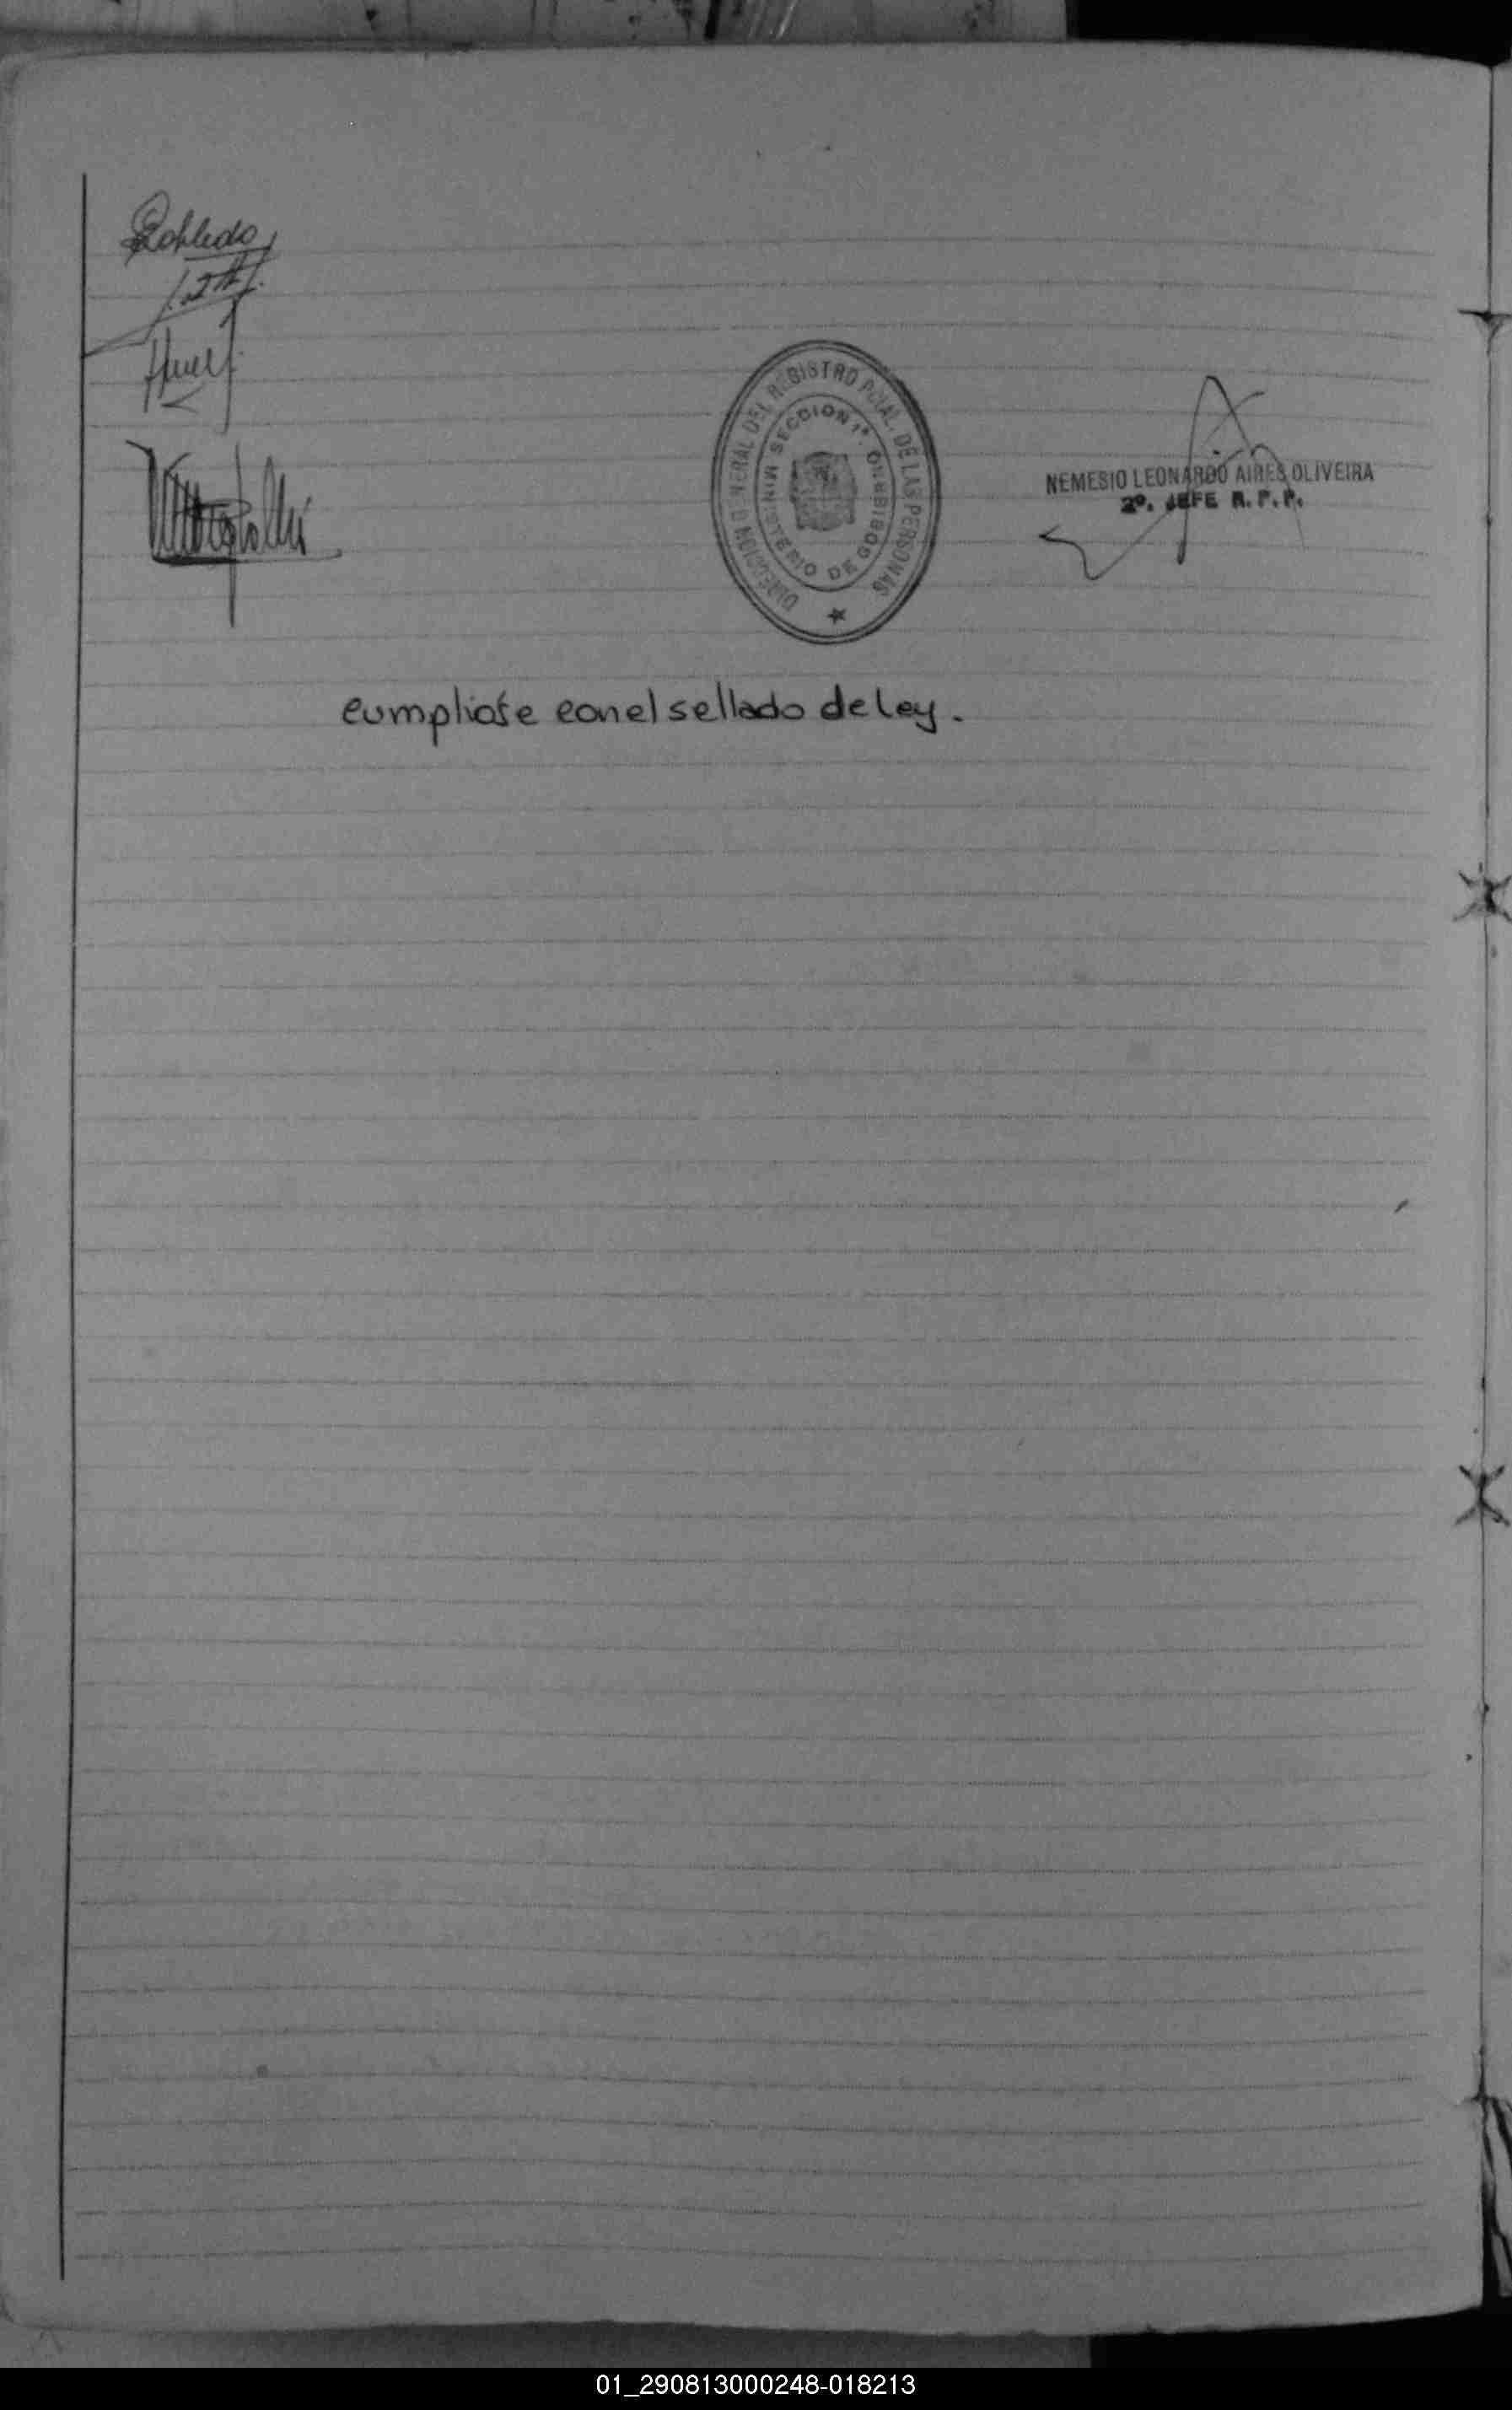 Robledo
DIRECCION GENERAL DEL REGISTRO PCIAL. DE LAS PERSONAS
MINISTERIO DE GOBIERNO
SECCION 1ª.
NEMESIO LEONARDO AIRES OLIVEIRA
2º. JEFE R. P. P.
cumpliose con el sellado de Ley.
01_290813000248-018213